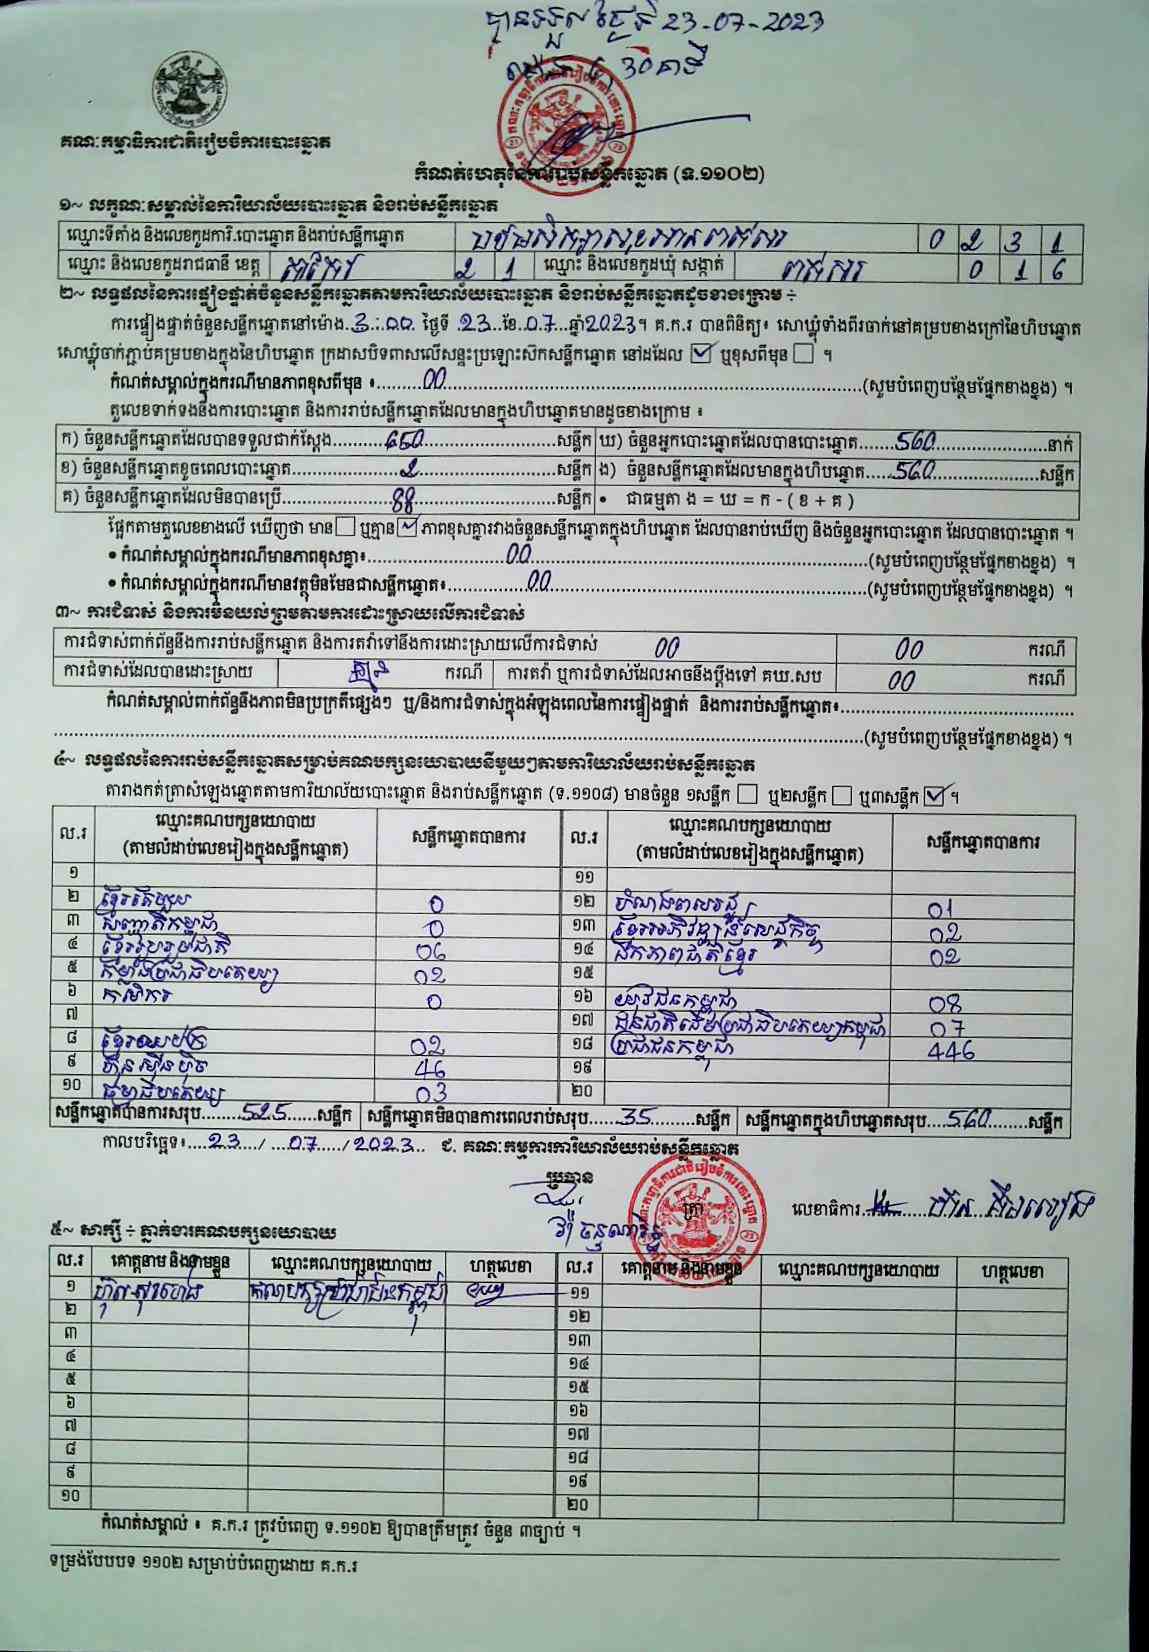 បានទទួល ថ្ងៃទី 23-07-2023
30 នាទី
គណៈកម្មាធិការជាតិរៀបចំការបោះឆ្នោត
កំណត់ហេតុនៃការរាប់សន្លឹកឆ្នោត (ទ.១១០២)
១~ លក្ខណៈសម្គាល់នៃការិយាល័យបោះឆ្នោត និងរាប់សន្លឹកឆ្នោត
ឈ្មោះទីតាំង និងលេខកូដការិ.បោះឆ្នោត និងរាប់សន្លឹកឆ្នោត 0 2 3 1
ឈ្មោះ និងលេខកូដរាជធានី ខេត្ត តាកែវ 2 1 ឈ្មោះ និងលេខកូដឃុំ សង្កាត់ ពាត់សរ 0 1 6
២~ លទ្ធផលនៃការផ្ទៀងផ្ទាត់ចំនួនសន្លឹកឆ្នោតតាមការិយាល័យបោះឆ្នោត និងរាប់សន្លឹកឆ្នោតដូចខាងក្រោម ÷
ការផ្ទៀងផ្ទាត់ចំនួនសន្លឹកឆ្នោតនៅម៉ោង.3.:.00. ថ្ងៃទី .23..ខែ.07...ឆ្នាំ2023។ គ.ក.រ បានពិនិត្យ៖ សោឃ្លុំទាំងពីរចាក់នៅគម្របខាងក្រៅនៃហិបឆ្នោត
សោឃ្លុំចាក់ភ្ជាប់គម្របខាងក្នុងនៃហិបឆ្នោត ក្រដាសបិទពាសលើសន្ទះប្រឡោះសិកសន្លឹកឆ្នោត នៅដដែល ☑ ឬខុសពីមុន ☐ ។
កំណត់សម្គាល់ក្នុងករណីមានភាពខុសពីមុន ៖........00........(សូមបំពេញបន្ថែមផ្នែកខាងខ្នង) ។
តួលេខទាក់ទងនឹងការបោះឆ្នោត និងការរាប់សន្លឹកឆ្នោតដែលមានក្នុងហិបឆ្នោតមានដូចខាងក្រោម ៖
ក) ចំនួនសន្លឹកឆ្នោតដែលបានទទួលជាក់ស្តែង........650........សន្លឹក ឃ) ចំនួនអ្នកបោះឆ្នោតដែលបានបោះឆ្នោត......560......នាក់
ខ) ចំនួនសន្លឹកឆ្នោតខូចពេលបោះឆ្នោត........2........សន្លឹក ង) ចំនួនសន្លឹកឆ្នោតដែលមានក្នុងហិបឆ្នោត.....560......សន្លឹក
គ) ចំនួនសន្លឹកឆ្នោតដែលមិនបានប្រើ........88........សន្លឹក • ជាធម្មតា ង = ឃ = ក - ( ខ + គ )
ផ្អែកតាមតួលេខខាងលើ ឃើញថា មាន ☐ ឬគ្មាន ☑ ភាពខុសគ្នារវាងចំនួនសន្លឹកឆ្នោតក្នុងហិបឆ្នោត ដែលបានរាប់ឃើញ និងចំនួនអ្នកបោះឆ្នោត ដែលបានបោះឆ្នោត ។
• កំណត់សម្គាល់ក្នុងករណីមានភាពខុសគ្នា៖........00........(សូមបំពេញបន្ថែមផ្នែកខាងខ្នង) ។
• កំណត់សម្គាល់ក្នុងករណីមានវត្ថុមិនមែនជាសន្លឹកឆ្នោត៖........00........(សូមបំពេញបន្ថែមផ្នែកខាងខ្នង) ។
៣~ ការជំទាស់ និងការមិនយល់ព្រមតាមការដោះស្រាយលើការជំទាស់
ការជំទាស់ពាក់ព័ន្ធនឹងការរាប់សន្លឹកឆ្នោត និងការតវ៉ាទៅនឹងការដោះស្រាយលើការជំទាស់ 00 00 ករណី
ការជំទាស់ដែលបានដោះស្រាយ គ្មាន ករណី ការតវ៉ា ឬការជំទាស់ដែលអាចនឹងប្តឹងទៅ គឃ.សប 00 ករណី
កំណត់សម្គាល់ពាក់ព័ន្ធនឹងភាពមិនប្រក្រតីផ្សេងៗ ឬ/និងការជំទាស់ក្នុងអំឡុងពេលនៃការផ្ទៀងផ្ទាត់ និងការរាប់សន្លឹកឆ្នោត៖........
........(សូមបំពេញបន្ថែមផ្នែកខាងខ្នង) ។
៤~ លទ្ធផលនៃការរាប់សន្លឹកឆ្នោតសម្រាប់គណបក្សនយោបាយនីមួយៗតាមការិយាល័យរាប់សន្លឹកឆ្នោត
តារាងកត់ត្រាសំឡេងឆ្នោតតាមការិយាល័យបោះឆ្នោត និងរាប់សន្លឹកឆ្នោត (ទ.១១០៨) មានចំនួន ១សន្លឹក ☐ ឬ២សន្លឹក ☐ ឬ៣សន្លឹក ☑ ។
ល.រ ឈ្មោះគណបក្សនយោបាយ (តាមលំដាប់លេខរៀងក្នុងសន្លឹកឆ្នោត) សន្លឹកឆ្នោតបានការ ល.រ ឈ្មោះគណបក្សនយោបាយ (តាមលំដាប់លេខរៀងក្នុងសន្លឹកឆ្នោត) សន្លឹកឆ្នោតបានការ
១ ១១
២ ខ្មែរតែមួយ 0 ១២ សំណាងពលរដ្ឋ 01
៣ សញ្ជាតិកម្ពុជា 0 ១៣ ខ្មែរអភិវឌ្ឍន៍សេដ្ឋកិច្ច 02
៤ ខ្មែររួបរួមជាតិ 06 ១៤ ឯកភាពជាតិខ្មែរ 02
៥ កម្លាំងប្រជាធិបតេយ្យ 02 ១៥
៦ កសិករ 0 ១៦ យុវជនកម្ពុជា 08
៧ ១៧ ជនជាតិដើមប្រជាធិបតេយ្យកម្ពុជា 07
៨ ខ្មែរឈប់ក្រ 02 ១៨ ប្រជាជនកម្ពុជា 446
៩ ហ៊្វុនស៊ិនប៉ិច 46 ១៩
១០ ធម្មាធិបតេយ្យ 03 ២០
សន្លឹកឆ្នោតបានការសរុប........525......សន្លឹក សន្លឹកឆ្នោតមិនបានការពេលរាប់សរុប.....35......សន្លឹក សន្លឹកឆ្នោតក្នុងហិបឆ្នោតសរុប....560......សន្លឹក
កាលបរិច្ឆេទ៖...23.../...07.../2023... ជ. គណៈកម្មការការិយាល័យរាប់សន្លឹកឆ្នោត
ប្រធាន ត្រា លេខាធិការ
៥~ សាក្សី ÷ ភ្នាក់ងារគណបក្សនយោបាយ
ល.រ គោត្តនាម និងនាមខ្លួន ឈ្មោះគណបក្សនយោបាយ ហត្ថលេខា ល.រ គោត្តនាម និងនាមខ្លួន ឈ្មោះគណបក្សនយោបាយ ហត្ថលេខា
១ គណបក្សប្រជាជនកម្ពុជា ១១
២ ១២
៣ ១៣
៤ ១៤
៥ ១៥
៦ ១៦
៧ ១៧
៨ ១៨
៩ ១៩
១០ ២០
កំណត់សម្គាល់ ៖ គ.ក.រ ត្រូវបំពេញ ទ.១១០២ ឱ្យបានត្រឹមត្រូវ ចំនួន ៣ច្បាប់ ។
ទម្រង់បែបបទ ១១០២ សម្រាប់បំពេញដោយ គ.ក.រ